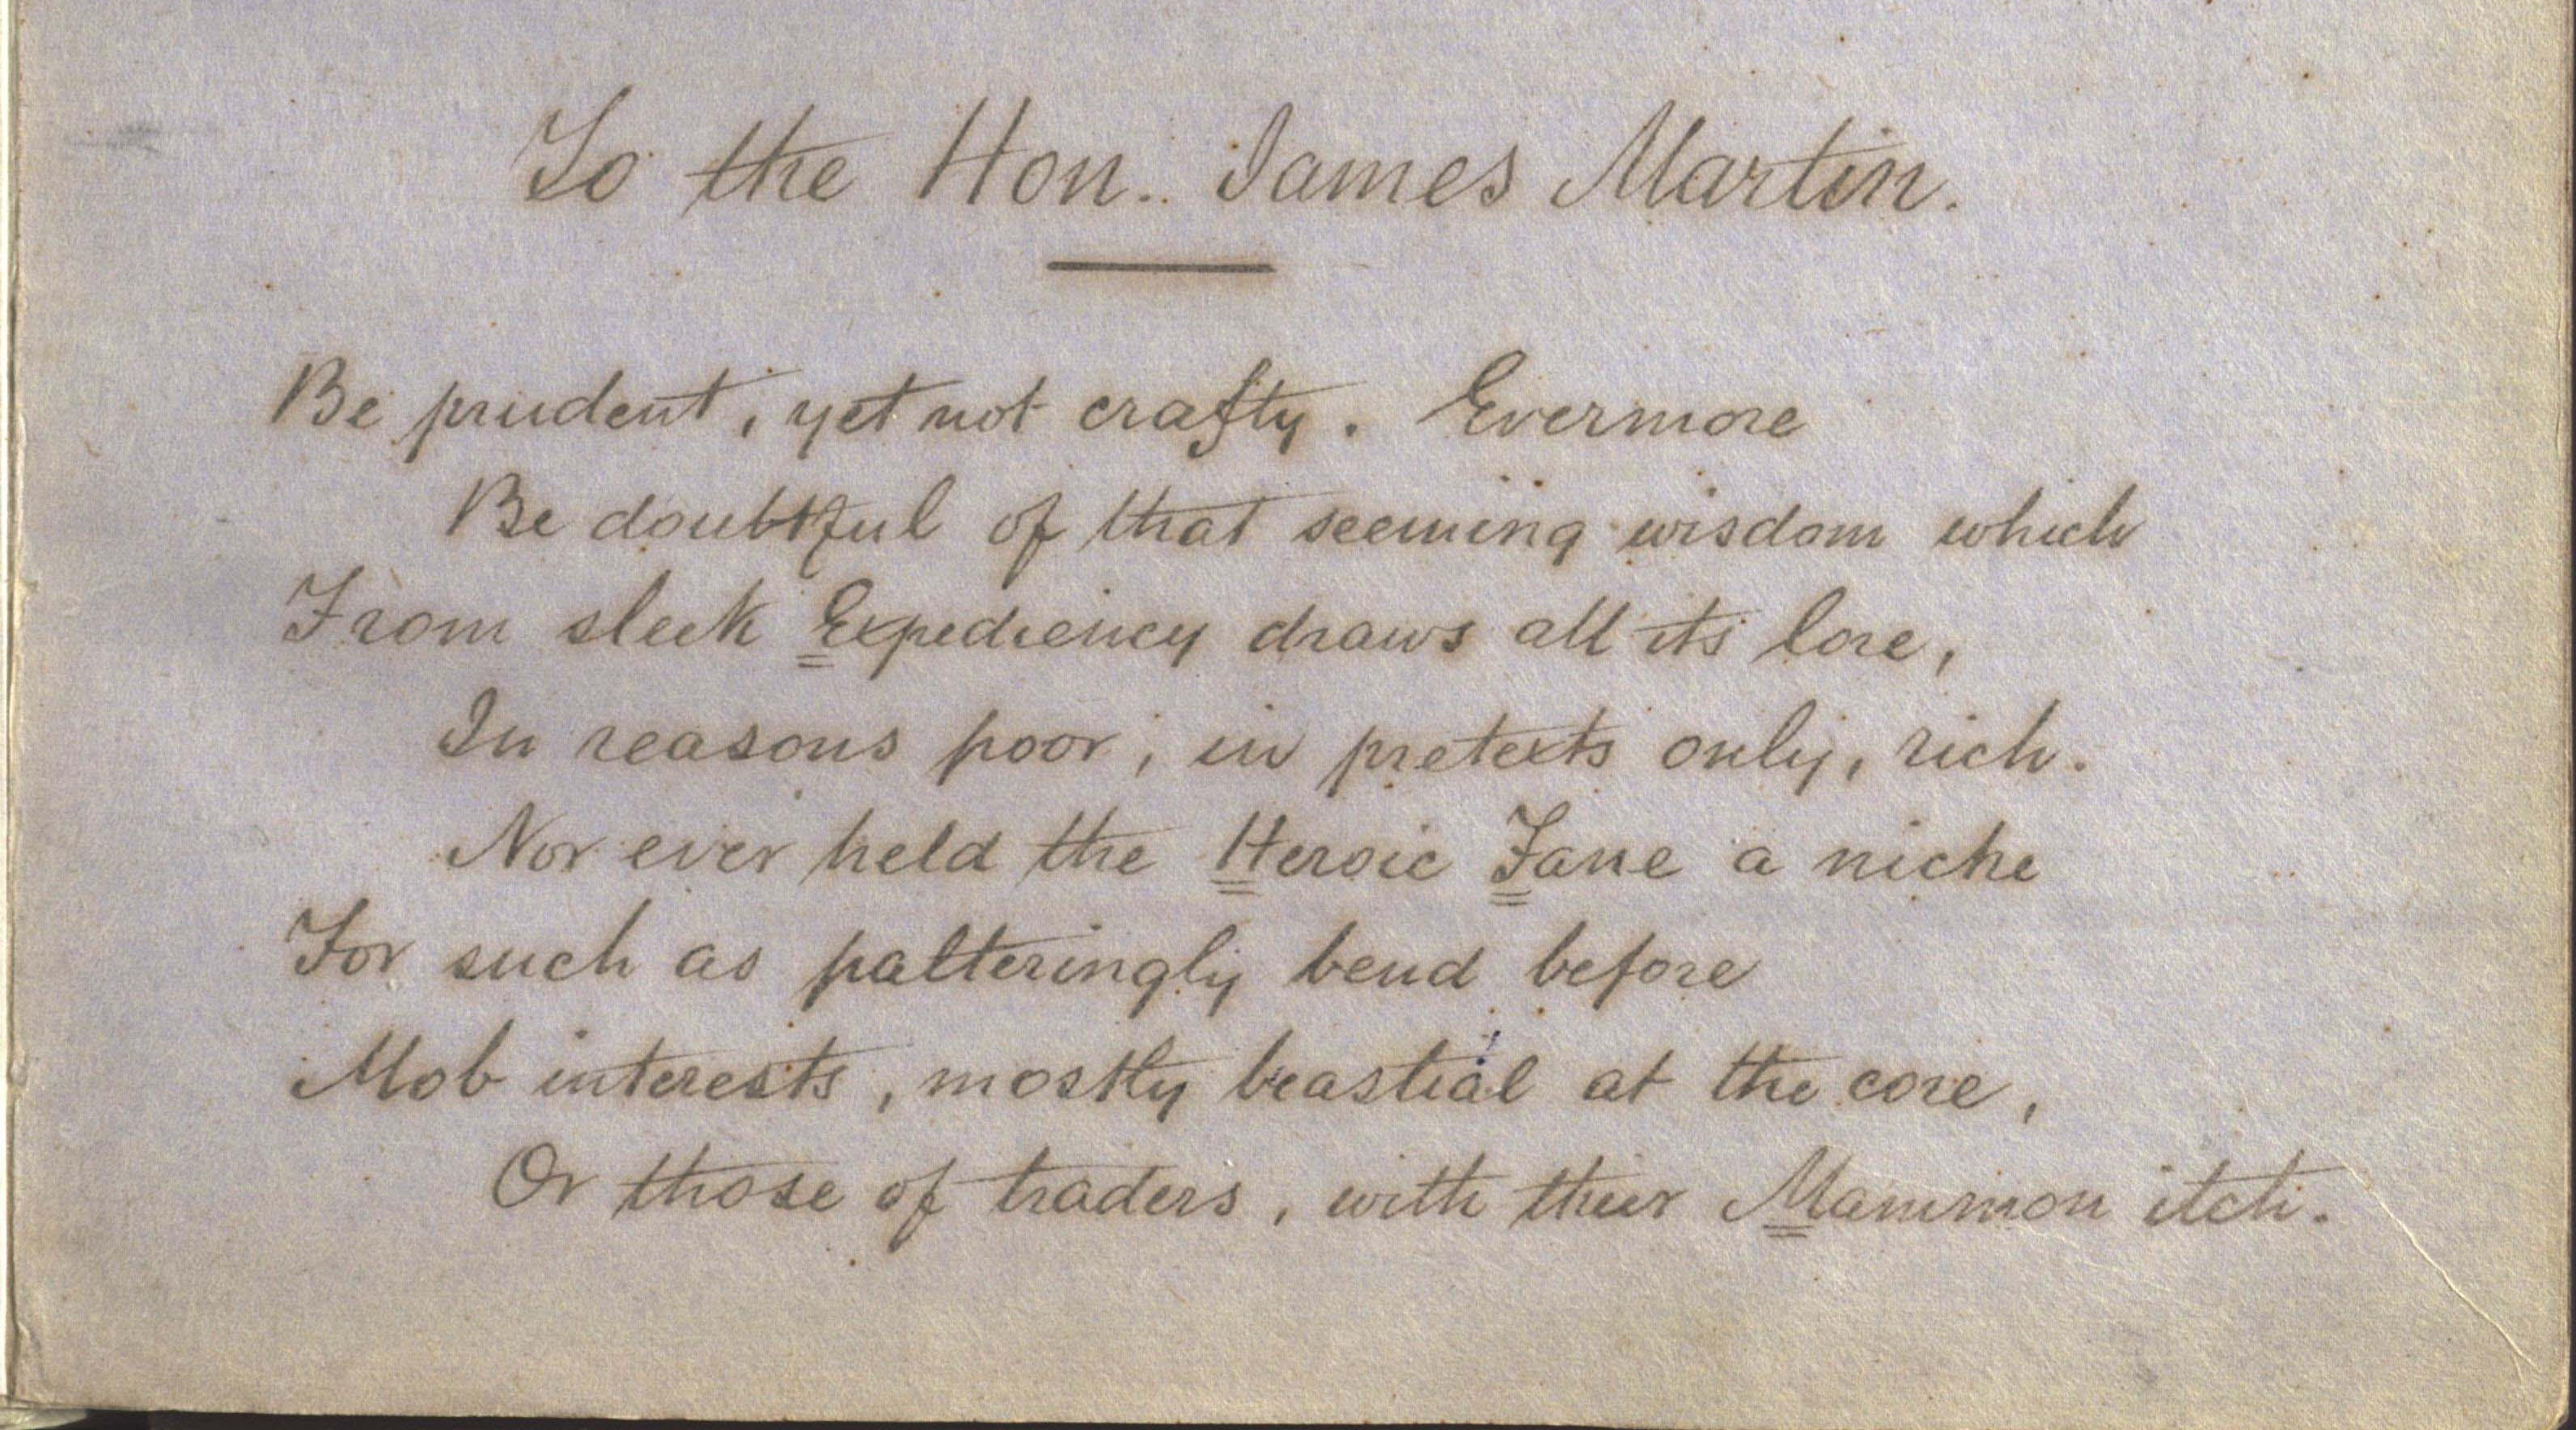 To the Hon. James Martin.
Be prudent, yet not crafty. Evermore
Be doubtful of that seeming wisdom which
From sleek Expediency draws all its lore,
In reasons poor, in pretexts only, rich.
Nor ever held the Heroic Fane a niche
For such as palteringly bend before
Mob interests, mostly beastial at the core,
Or those of traders, with their Mammon itch.